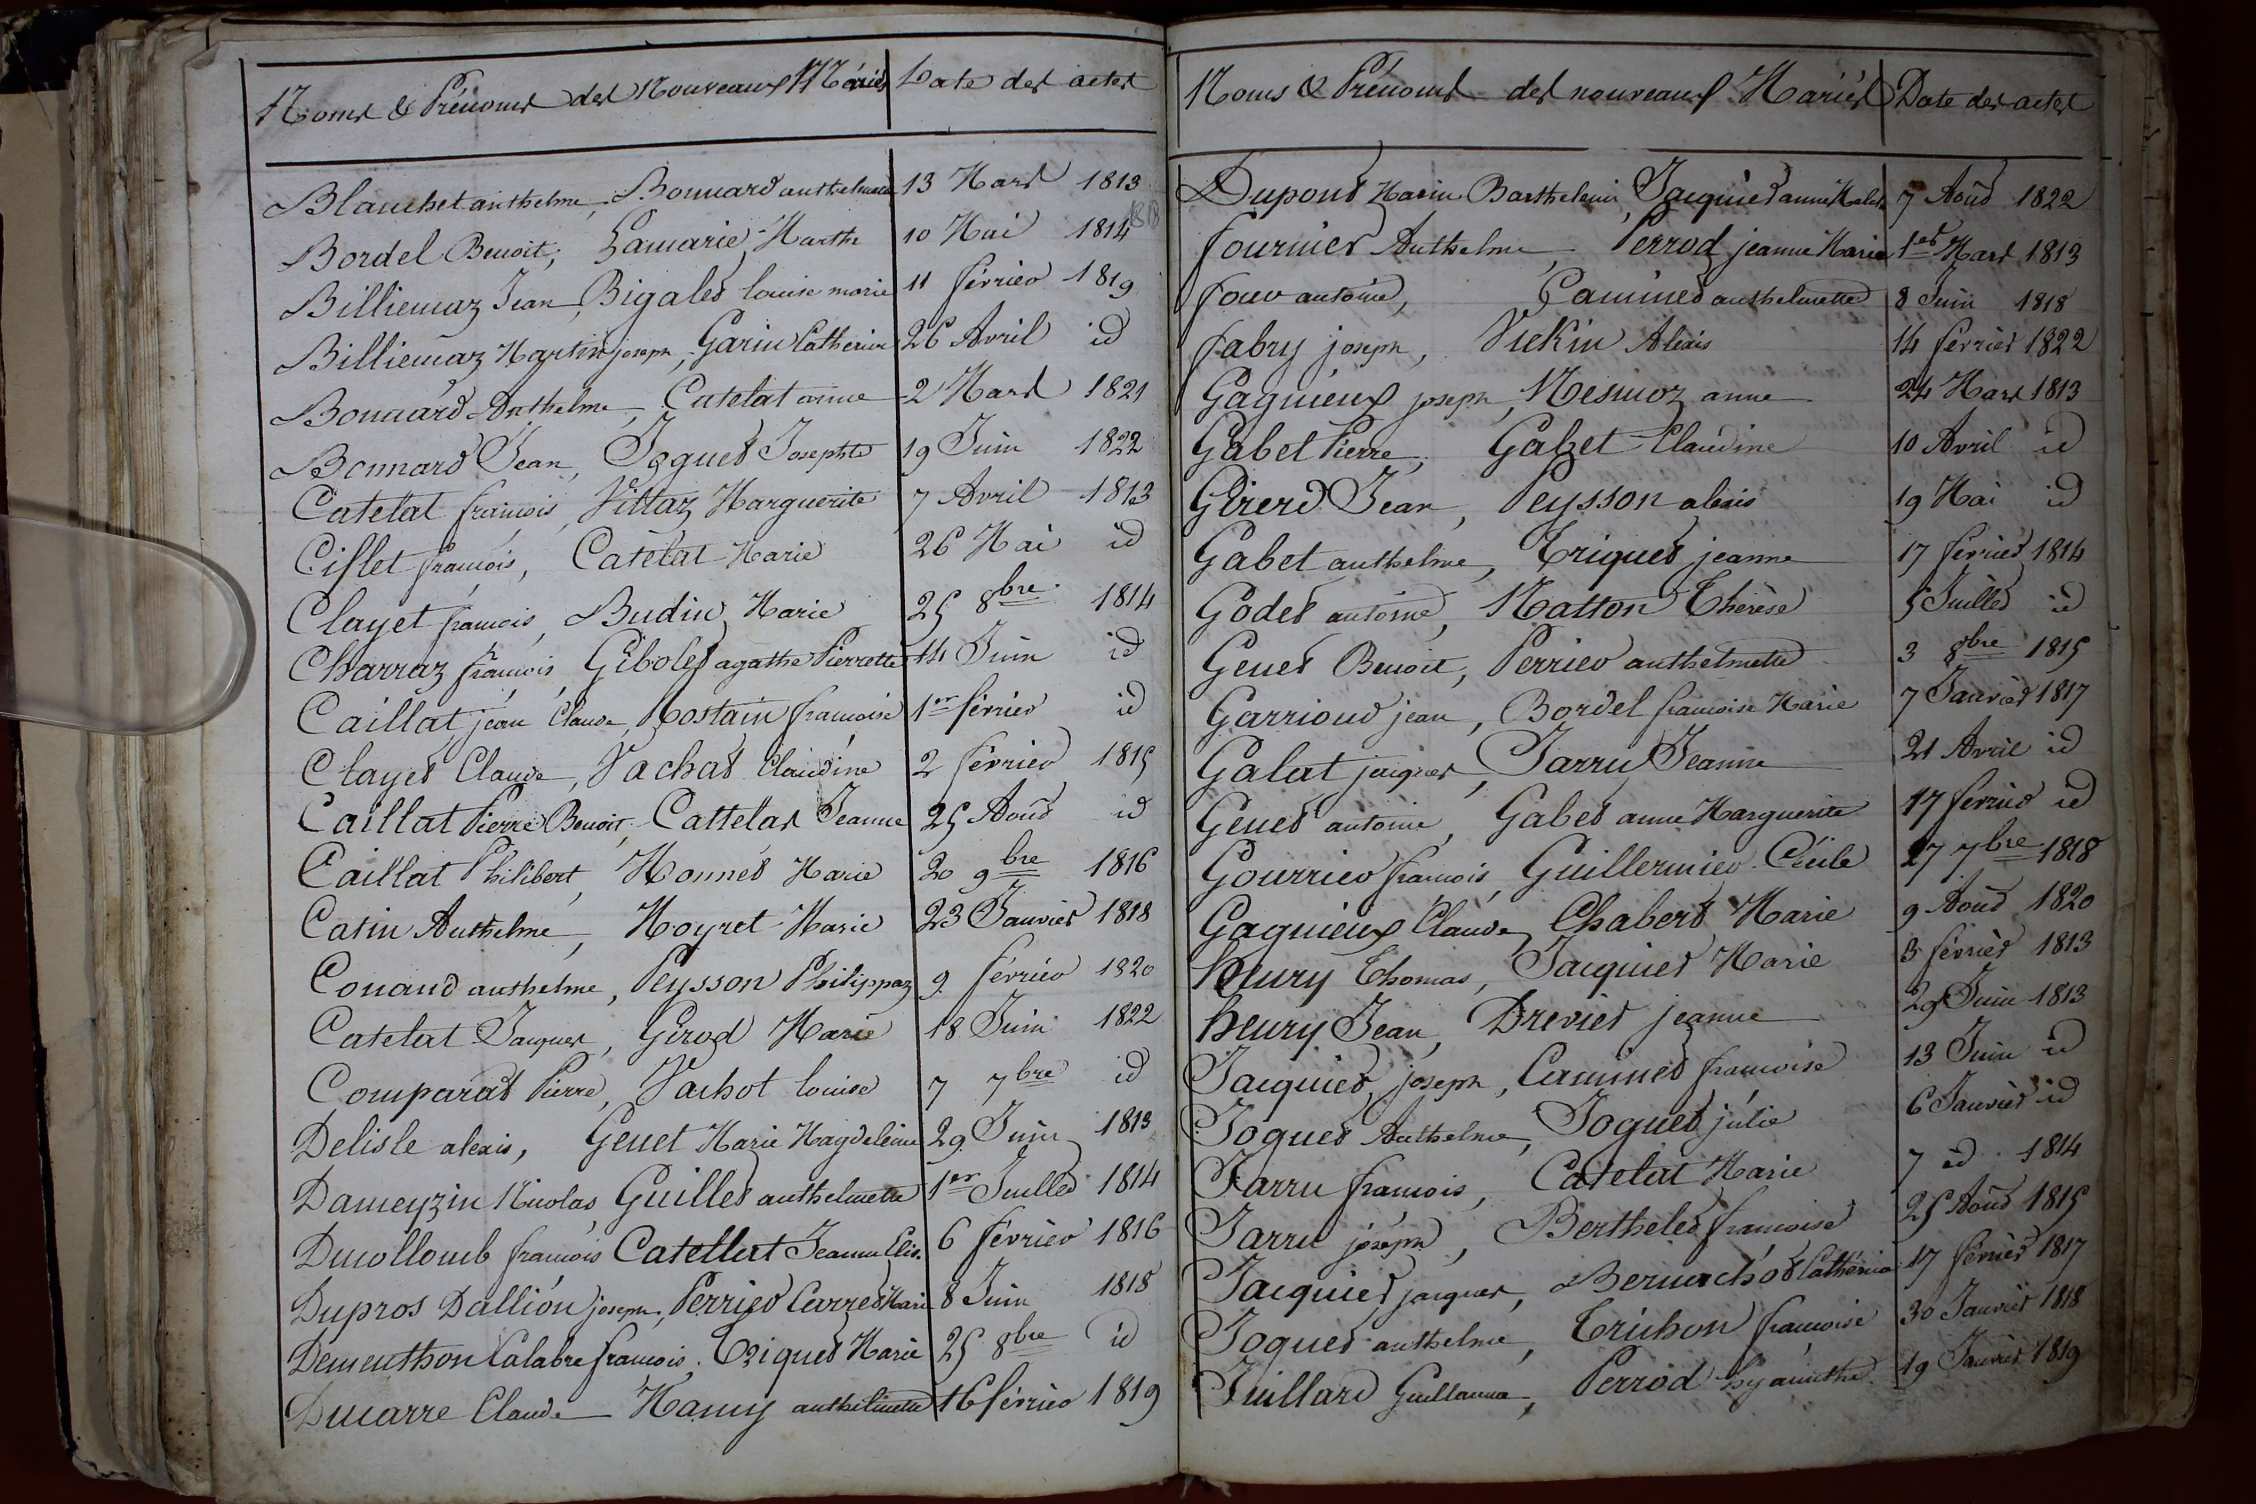 Noms & Prénoms des Nouveaux Mariés Date des actes
Blanchet anthelme, Bonnard anthelmette 13 Mars 1813
Bordel Benoit, Lamarie Marthe 10 Mai 1814
Billiemaz Jean, Bigalet louise marie 11 février 1819
Billiemaz Martin joseph, Garin Catherine 26 Avril id
Bonnard Anthelme, Catelat anne 2 Mars 1821
Bonnard Jean, Joguet Josephte 19 Juin 1822
Catelat francois, Vittaz Marguerite 7 Avril 1813
Ciflet francois, Catelat Marie 26 Mai id
Clayet francois, Budin Marie 25 8bre 1814
Charraz francois, Gibolet agathe Pierrette 14 Juin id
Caillat jean Claude, Rostain francoise 1er février id
Clayet Claude, Vachat Claudine 2 février 1815
Caillat Pierre Benoit, Cattelat Jeanne 25 Août id
Caillat Philibert, Monnet Marie 20 9bre 1816
Catin Anthelme, Moyret Marie 23 Janvier 1818
Conand anthelme, Peysson Philippaz 9 février 1820
Catelat Jacques, Girod Marie 18 Juin 1822
Comparat Pierre, Vachot louise 7 7bre id
Delisle alexis, Genet Marie Magdeleine 29 Juin 1813
Dameyzin Nicolas Guillet anthelmette 1er Juillet 1814
Ducollomb francois Catellat Jeanne Elis. 6 février 1816
Dupros Dallión joseph, Perrier Carret Marie 8 Juin 1818
Dementhon Calabre francois. Triquet Marie 25 8bre id
Ducarre Claude Mamy anthelmette 16 février 1819
Noms & Prénoms des nouveaux Mariés Date des actes
Dupont Marin Barthelemi, Jacquier anne 7 Août 1822
fournier Anthelme, Perrod jeanne Marie 1er Mars 1813
antoine, Caminet anthelmette 8 Juin 1818
fabry joseph, Alexis 14 février 1822
Gagnieux joseph, Mesmoz anne 24 Mars 1813
Gabet Pierre, Gabet Claudine 10 Avril id
Girerd Jean, Peysson alexis 19 Mai id
Gabet anthelme, Triquet jeanne 17 février 1814
Godet antoine, Matton Thérèse 5 Juillet id
Genet Benoit, Perrier anthelmette 3 8bre 1815
Garrioud jean, Bordel francoise Marie 7 Janvier 1817
Galat jacques, Jarru Jeanne 21 Avril id
Genet antoine, Gabet anne Marguerite 17 février id
Gourrier francois, Guillermier Cécile 27 7bre 1818
Gagnieux Claude, Chabert Marie 9 Août 1820
henry Thomas, Jacquier Marie 3 février 1813
henry Jean, Drevier jeanne 29 Juin 1813
Jacquier joseph, Caminet francoise 13 Juin id
Joguet Anthelme, Joguet julie 6 Janvier id
Jarru francois, Catelat Marie 7 id 1814
Jarru joseph, Berthelet francoise 25 Août 1815
Jacquier jacques, Bernachot Catherine 17 février 1817
Joguet anthelme, Trichon françoise 30 Janvier 1818
Juillard Guillaume, Perrod hyacinthe 19 Janvier 1819